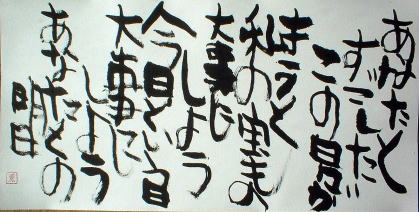 あなたと
すごした
この日が
きっと
私の宝もの
大事に
しよう
今日という日
大事に
しよう
あなたとの
明日